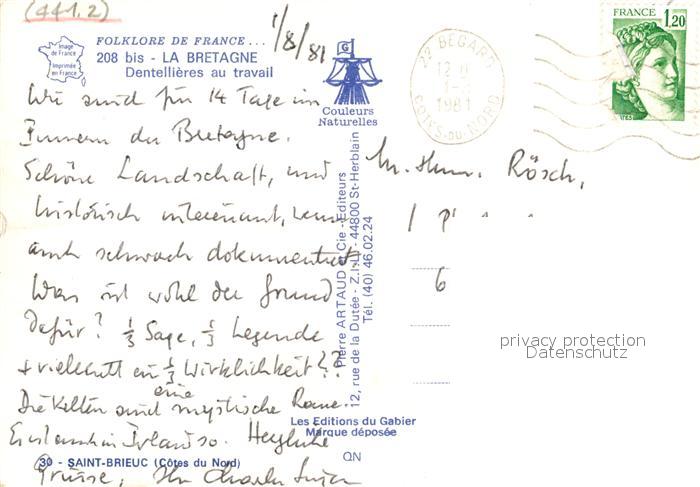 (441.2)
1/8/81
FOLKLORE DE FRANCE...
208 bis - LA BRETAGNE
Dentellières au travail
Image
de France
Imprimée
en France
G
Couleurs
Naturelles
Wir sind für 14 Tage im
Innern der Bretagne.
Schöne Landschaft, und
historisch interessant, wenn
auch schwach dokumentiert.
Was ist wohl der Grund
dafür? 1/3 Sage, 1/3 Legende
+ vielleicht ein 1/3 Wirklichkeit??
Die Kelten sind eine mystische Rasse.
Es ist auch in Irland so. Herzliche
Grüsse, Ihr Charles
30 - SAINT-BRIEUC (Côtes du Nord)
Pierre ARTAUD & Cie - Editeurs
12, rue de la Dutée - Z.I.L. - 44800 St-Herblain
Tél. (40) 46.02.24
Les Editions du Gabier
Marque déposée
QN
22 BEGARD
12 H
1-8
1981
COTES-DU-NORD
FRANCE 1,20
Rösch,
6
privacy protection
Datenschutz